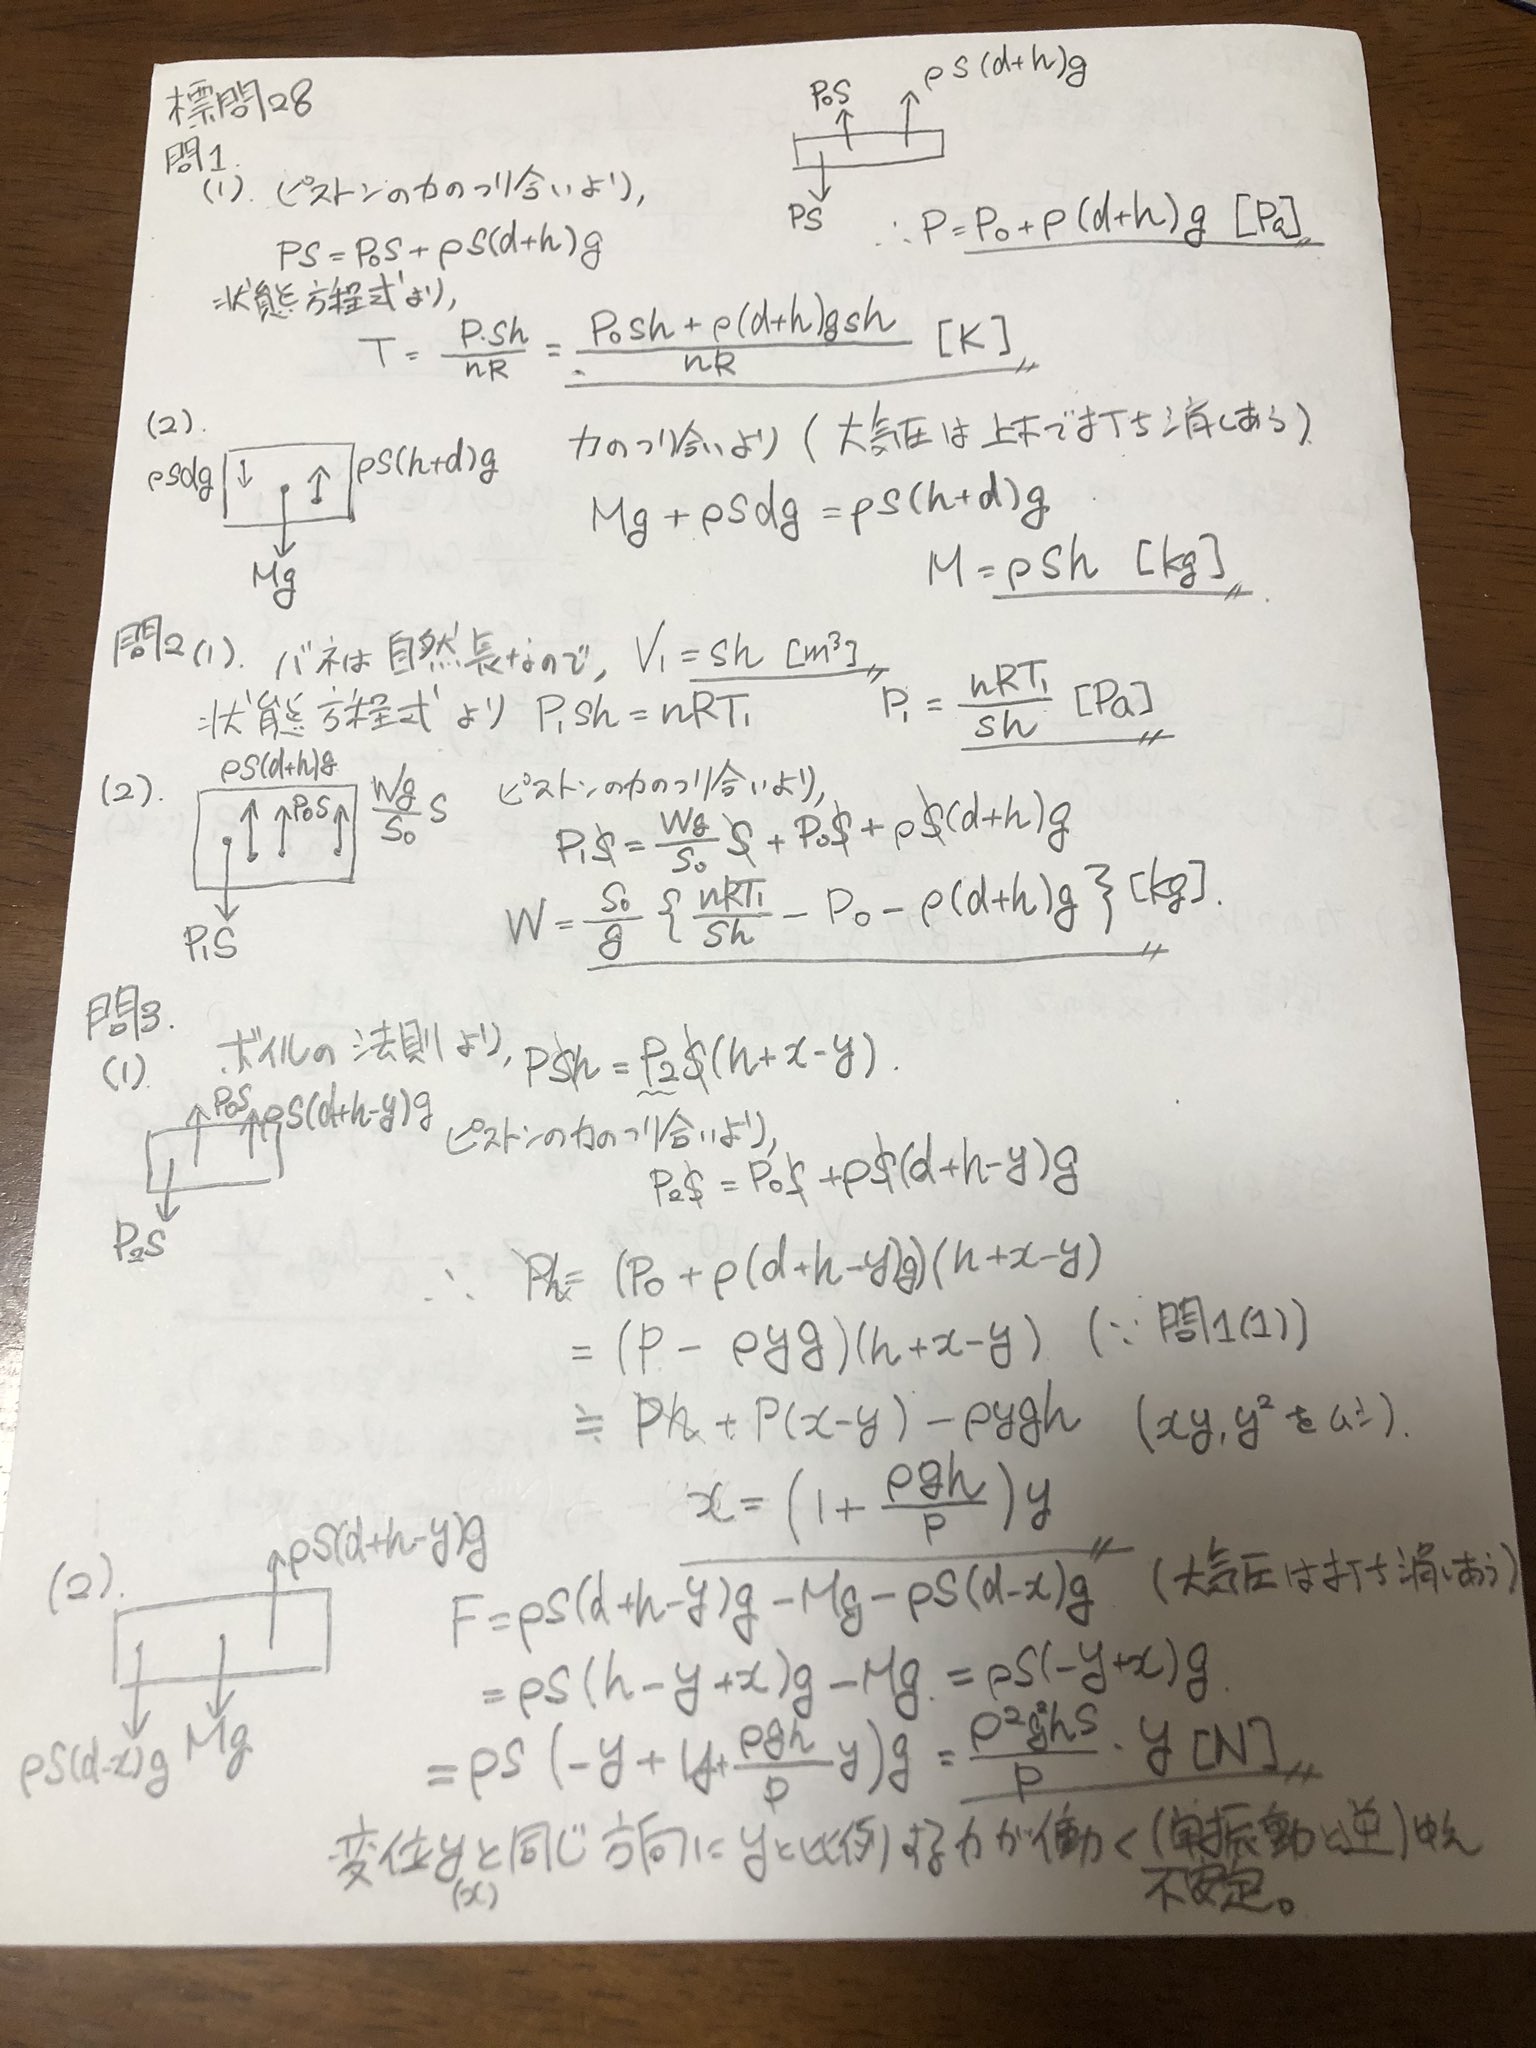 標問28
問1.
P₀S ρS(d+h)g
PS
(1). ピストンの力のつり合いより,
PS=P₀S+ρS(d+h)g ∴P=P₀+ρ(d+h)g [Pa]
状態方程式より,
T=P·Sh/nR=P₀Sh+ρ(d+h)gSh/nR [K]
(2).
ρSdg ρS(h+d)g
Mg
力のつり合いより(大気圧は上下で打ち消しあう)
Mg+ρSdg=ρS(h+d)g
M=ρSh [kg]
問2(1). バネは自然長なので, V₁=Sh [m³]
状態方程式より P₁Sh=nRT₁ P₁=nRT₁/Sh [Pa]
(2).
ρS(d+h)g P₀S Wg/S₀ S
P₁S
ピストンの力のつり合いより,
P₁S=Wg/S₀ S+P₀S+ρS(d+h)g
W=S₀/g{nRT₁/Sh-P₀-ρ(d+h)g}[kg].
問3.
(1) ボイルの法則より, PSh=P₂S(h+x-y).
P₀S ρS(d+h-y)g
P₂S
ピストンの力のつり合いより,
P₂S=P₀S+ρS(d+h-y)g
∴ Ph=(P₀+ρ(d+h-y)g)(h+x-y)
=(P-ρyg)(h+x-y) (∵問1(1))
≒Ph+P(x-y)-ρygh (xy,y²を仏).
x=(1+ρgh/P)y
(2).
ρS(d+h-y)g
ρS(d-x)g Mg
F=ρS(d+h-y)g-Mg-ρS(d-x)g (大気圧は打ち消しあう)
=ρS(h-y+x)g-Mg=ρS(-y+x)g.
=ρS(-y+y+ρgh/P y)g=ρ²g²hS/P·y [N]
変位yと同じ方向にyと比例する力が働く(単振動と逆)ゆえ
(x)
不安定。